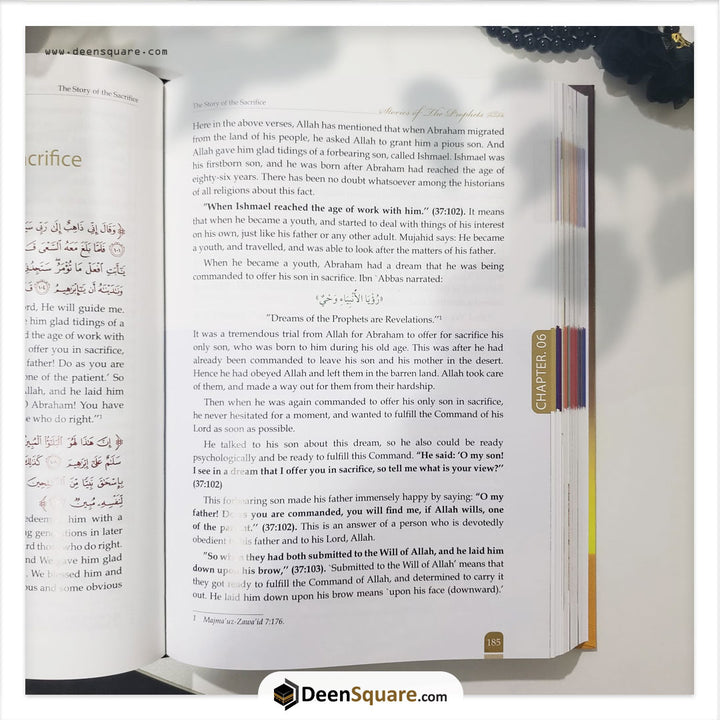 www.deensquare.com
The Story of the Sacrifice
acrifice
﴿ وَقَالَ إِنِّي ذَاهِبٌ إِلَىٰ رَبِّي
فَلَمَّا بَلَغَ مَعَهُ ٱلسَّعْىَ
يَٰٓأَبَتِ ٱفْعَلْ مَا تُؤْمَرُ
وَنَٰدَيْنَٰهُ أَن يَٰٓإِبْرَٰهِيمُ
rd, He will guide me.
him glad tidings of a
d the age of work with
offer you in sacrifice,
father! Do as you are
one of the patient.' So
Allah, and he laid him
O Abraham! You have
we who do right."¹
﴿ إِنَّ هَٰذَا لَهُوَ ٱلْبَلَٰٓؤُا۟ ٱلْمُبِينُ
سَلَٰمٌ عَلَىٰٓ إِبْرَٰهِيمَ كَذَٰلِكَ
بِإِسْحَٰقَ نَبِيًّا مِّنَ ٱلصَّٰلِحِينَ
لِّنَفْسِهِۦ مُبِينٌ ﴾
edeem him with a
g generations in later
rd those who do right.
nd We gave him glad
. We blessed him and
ous and some obvious
The Story of the Sacrifice
Stories of The Prophets
Here in the above verses, Allah has mentioned that when Abraham migrated
from the land of his people, he asked Allah to grant him a pious son. And
Allah gave him glad tidings of a forbearing son, called Ishmael. Ishmael was
his firstborn son, and he was born after Abraham had reached the age of
eighty-six years. There has been no doubt whatsoever among the historians
of all religions about this fact.
"When Ishmael reached the age of work with him." (37:102). It means
that when he became a youth, and started to deal with things of his interest
on his own, just like his father or any other adult. Mujahid says: He became
a youth, and travelled, and was able to look after the matters of his father.
When he became a youth, Abraham had a dream that he was being
commanded to offer his son in sacrifice. Ibn `Abbas narrated:
﴿رُؤْيَا الْأَنْبِيَاءِ وَحْيٌ﴾
"Dreams of the Prophets are Revelations."¹
It was a tremendous trial from Allah for Abraham to offer for sacrifice his
only son, who was born to him during his old age. This was after he had
already been commanded to leave his son and his mother in the desert.
Hence he had obeyed Allah and left them in the barren land. Allah took care
of them, and made a way out for them from their hardship.
Then when he was again commanded to offer his only son in sacrifice,
he never hesitated for a moment, and wanted to fulfill the Command of his
Lord as soon as possible.
He talked to his son about this dream, so he also could be ready
psychologically and be ready to fulfill this Command. "He said: 'O my son!
I see in a dream that I offer you in sacrifice, so tell me what is your view?"
(37:102)
This forbearing son made his father immensely happy by saying: "O my
father! Do as you are commanded, you will find me, if Allah wills, one
of the patient." (37:102). This is an answer of a person who is devotedly
obedient to his father and to his Lord, Allah.
"So when they had both submitted to the Will of Allah, and he laid him
down upon his brow," (37:103). `Submitted to the Will of Allah' means that
they got ready to fulfill the Command of Allah, and determined to carry it
out. He laid him down upon his brow means `upon his face (downward).'
1 Majma'uz-Zawa'id 7:176.
185
CHAPTER. 06
DeenSquare.com